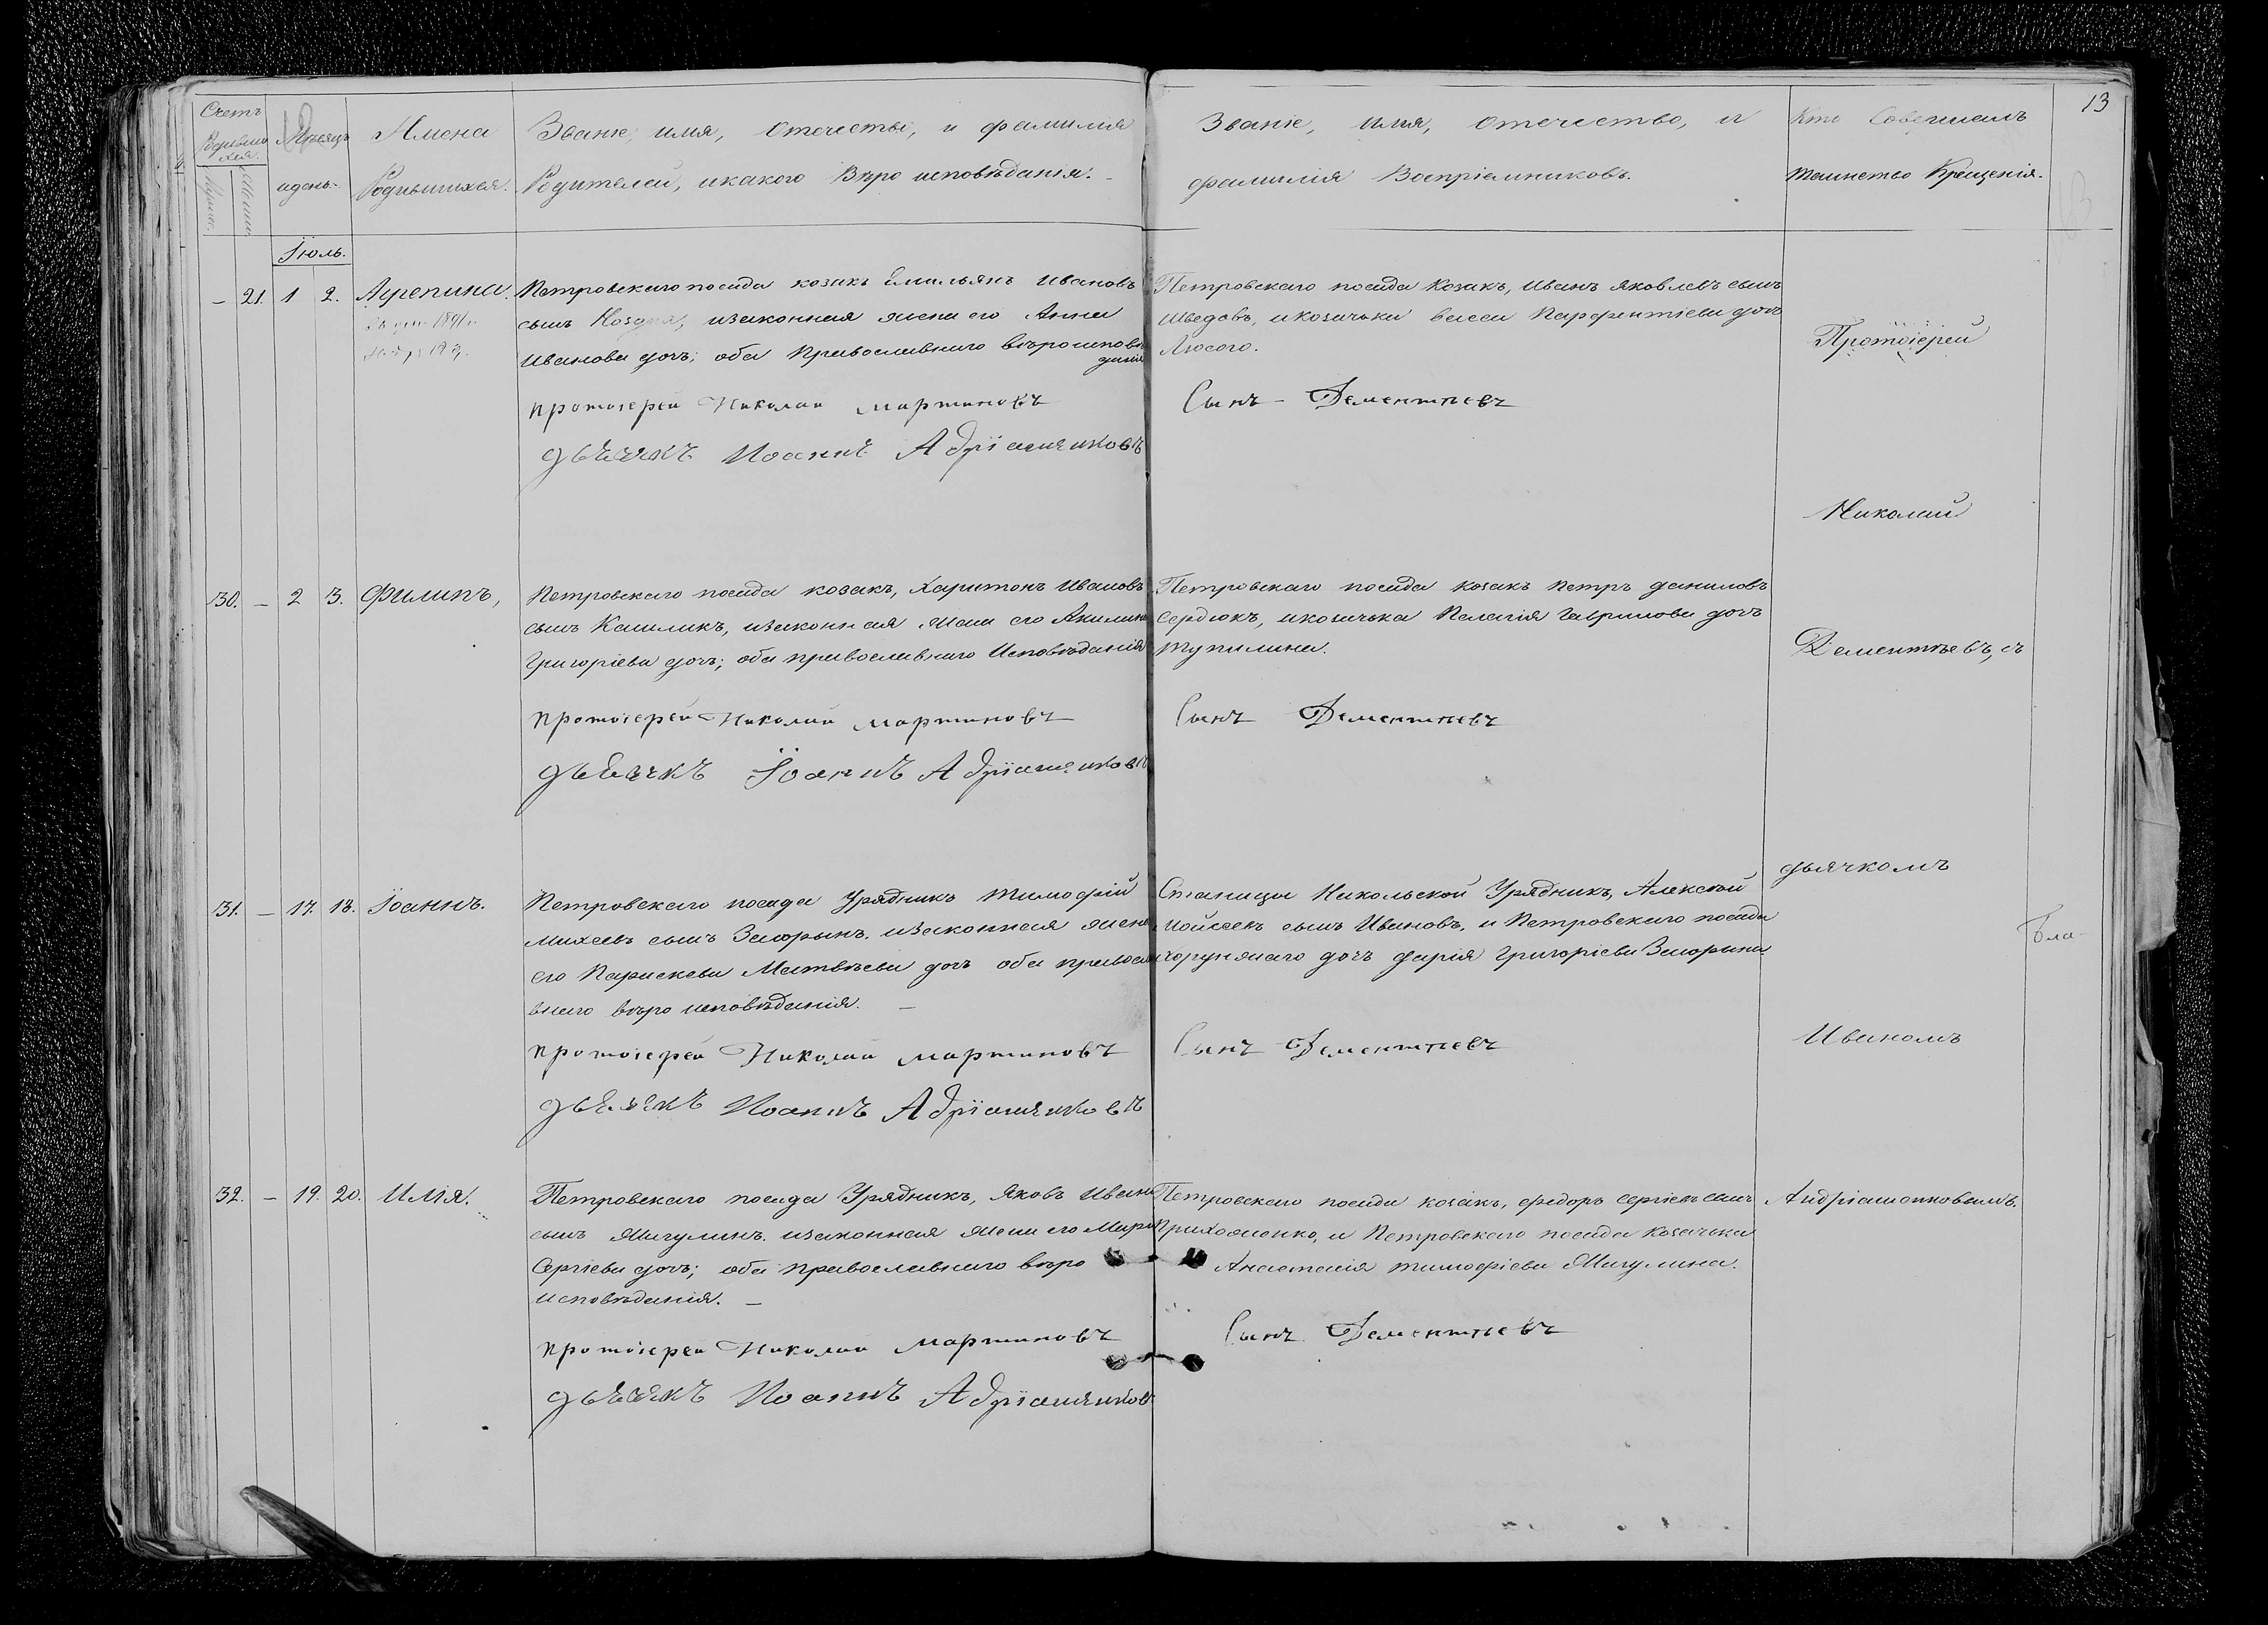 13
Счетъ Родившихся.
Мужес.
Женс.
Мѣсяцъ и день.
Имена
Родившихся.
Званіе, имя, отечество, и фамилия
Родителей, и какого Вѣро исповѣданія.
Званіе, имя, отечество, и
фамилія Воспріемниковъ.
Кто Совершалъ
таинство Крещенія.
Іюль.
– 21. 1 2. Агрепина
Петровскаго посада козакъ Емильянъ Ивановъ
сынъ, изаконная жена его Анна
Иванова дочь; оба православнаго вѣроисповѣ
данія
протоіерей Николай мартиновъ
дьячекъ Иоаннъ Адріашенковъ
Петровскаго посада козакъ, Иванъ яковлевъ сынъ
Шведовъ, и козачька васса Парфентіева дочь
Лысого.
Сынъ Дементьевъ
Протоіерей
Николай
30. – 2 3. Филипъ,
Петровскаго посада козакъ, Харитонъ Ивановъ
сынъ Калиликъ, изаконная жена его Акилина
Григоріева дочь; оба православнаго Исповѣданія
протоіерей Николай мартиновъ
дьячекъ Іоаннъ Адріашенковъ
Петровскаго посада козакъ Петръ даниловъ
Сердюкъ, и козачька Пелагія Гаврилова дочь
тупилина.
Сынъ Дементьевъ
Дементьевъ, съ
дьячкомъ
31. – 17. 18. Іоаннъ.
Петровскаго посада Урядникъ Тимофій
Михеевъ сынъ Захорынъ. изаконная жена
его Параскева Матвѣева дочь оба правосла
внаго вѣро исповѣданія. –
протоіерей Николай мартиновъ
дьячекъ Иоаннъ Адріашенковъ
Станицы Никольской Урядникъ, Алексѣй
мойсеевъ сынъ Ивановъ, и Петровскаго посада
хорунжаго дочь дарія григоріева Захорына
Сынъ Дементьевъ
Бла-
Иваномъ
32. – 19. 20. Илія.
Петровскаго посада Урядникъ, Яковъ Ивана
сынъ Мигулинъ. изаконная жена его Мара
Сергіева дочь; оба православнаго вѣро
исповѣданія. –
протоіерей Николай мартиновъ
дьячекъ Иоаннъ Адріашенков
Петровскаго посада козакъ, федоръ сергіевъ сынъ
Приходченко, и Петровскаго посада козачька
Анастасія тимофіева Мигулина.
Сынъ Дементьевъ
Андріашенковымъ.